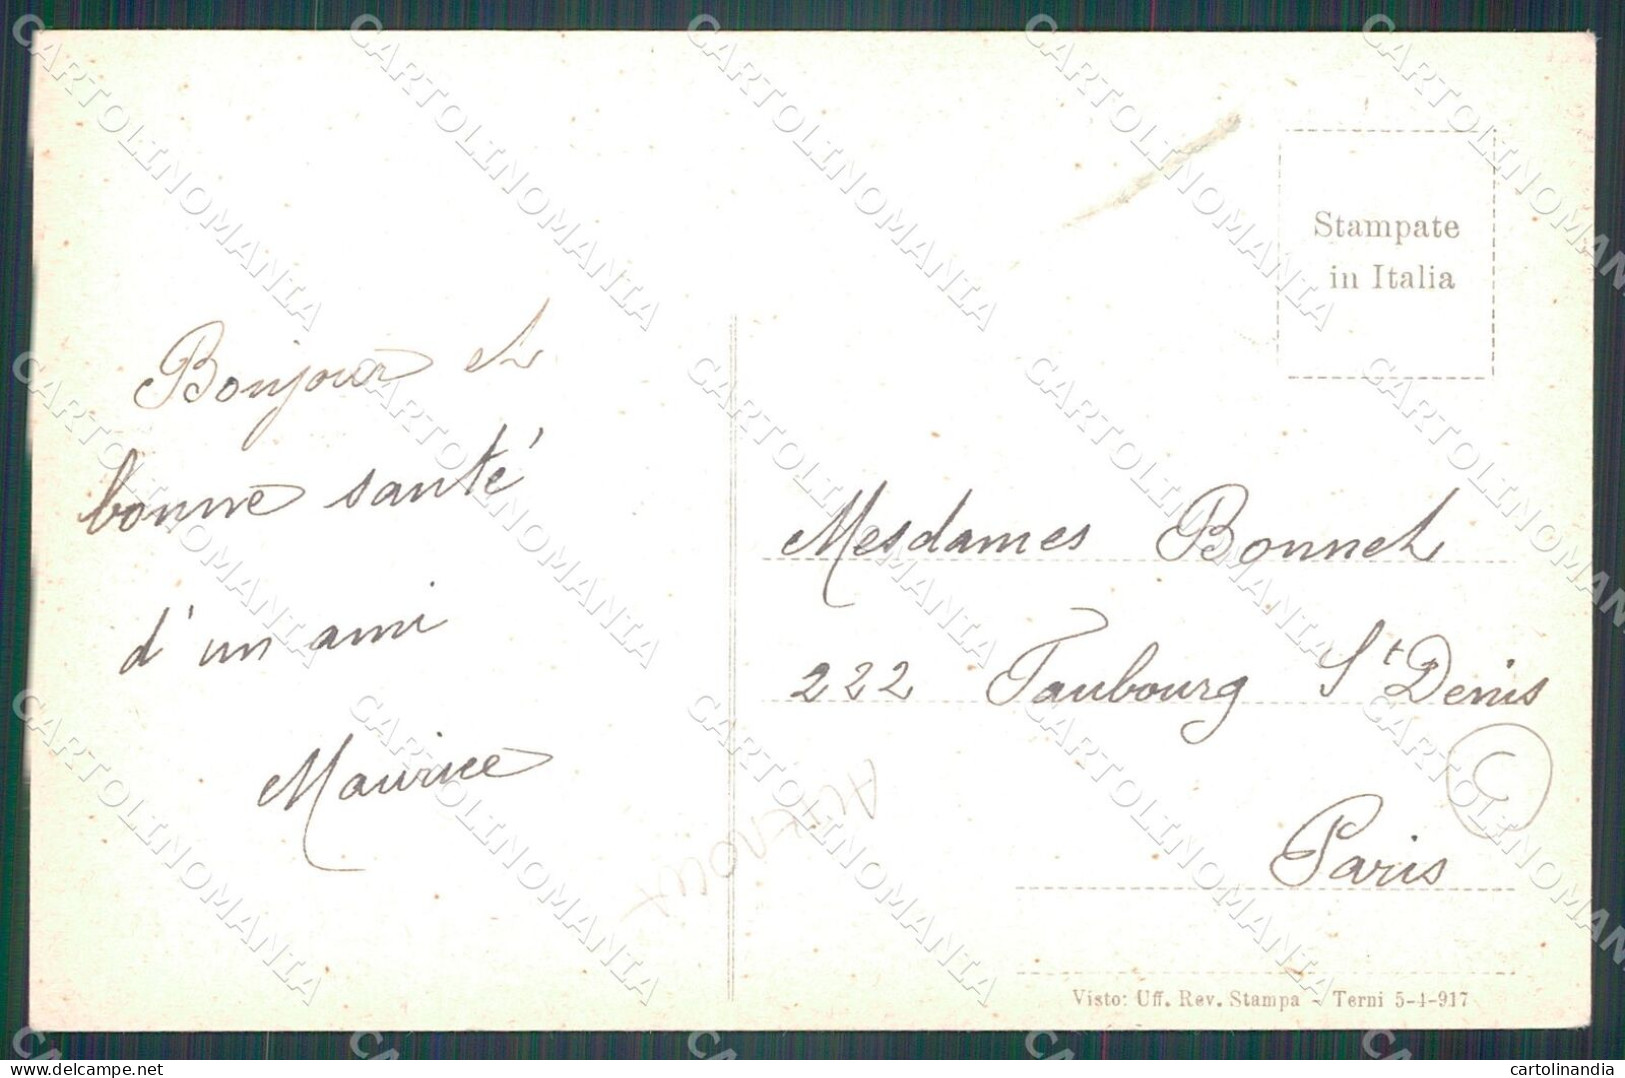 Stampate
in Italia
Bonjour et
bonne santé
d'un ami
Maurice
Mesdames Bonnet
222 Faubourg St Denis
Paris
C
Visto: Uff. Rev. Stampa - Terni 5-4-917
CARTOLINOMANIA
delcampe.net
cartolinandia